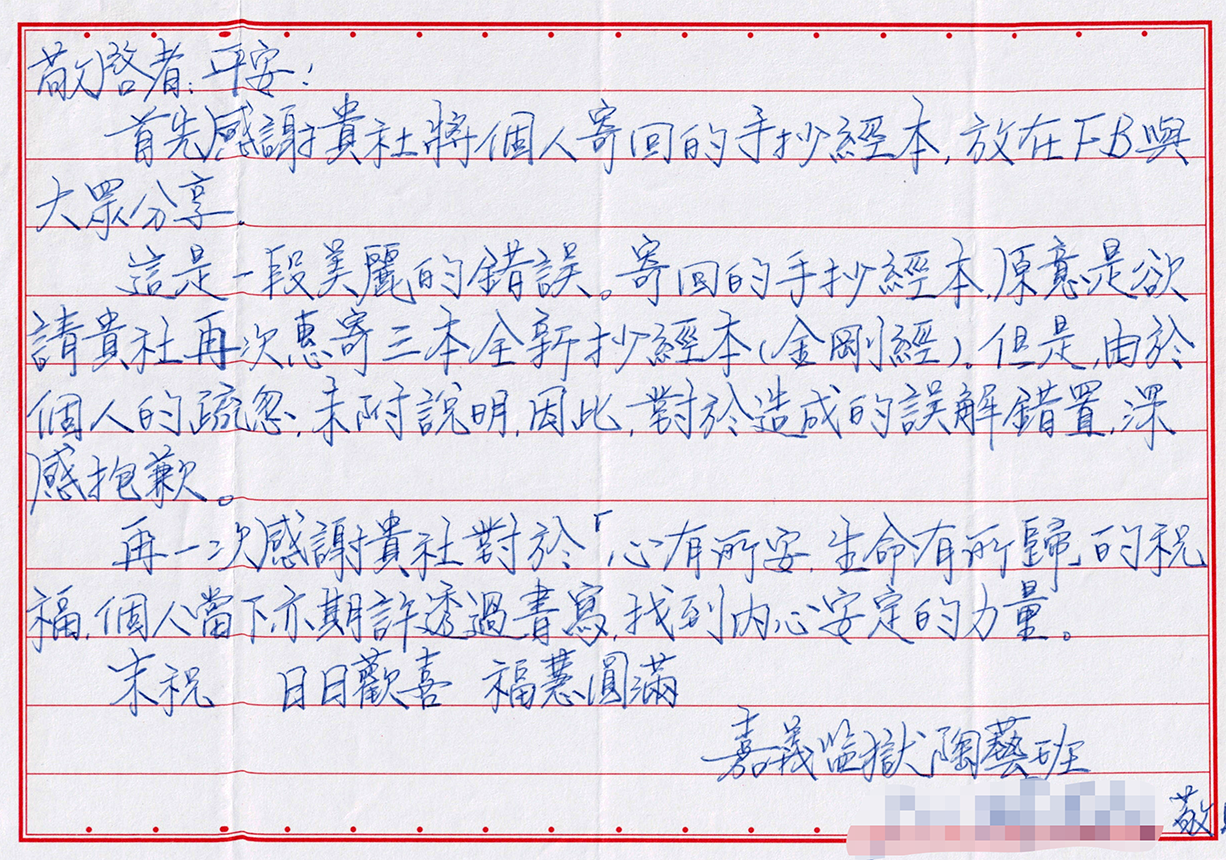 敬啓者：平安！
首先感謝貴社將個人寄回的手抄經本，放在FB與
大眾分享。
這是一段美麗的錯誤。寄回的手抄經本，原意是欲
請貴社再次惠寄三本全新抄經本（金剛經）。但是，由於
個人的疏忽，未附說明，因此，對於造成的誤解錯置，深
感抱歉。
再一次感謝貴社對於「心有所安，生命有所歸」的祝
福，個人當下亦期許透過書寫，找到內心安定的力量。
末祝　日日歡喜　福慧圓滿
嘉義監獄陶藝班
敬